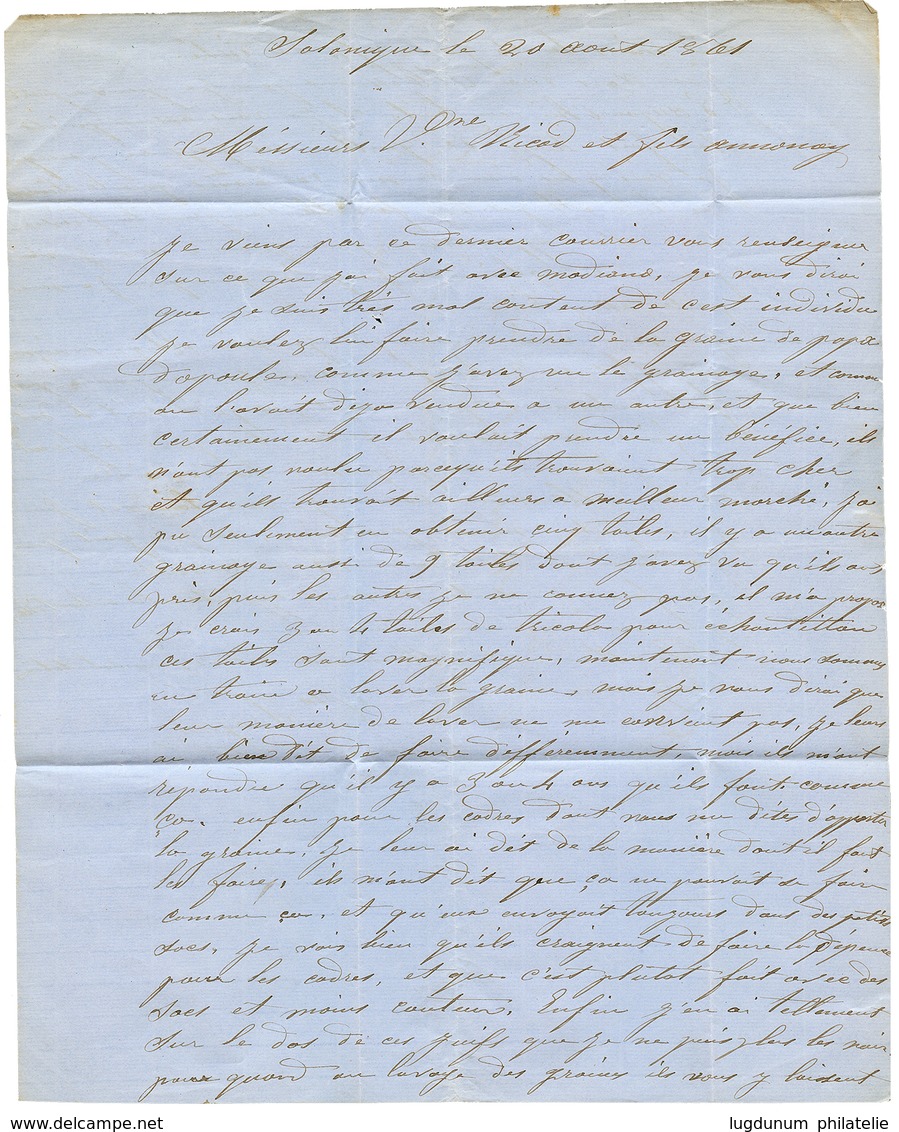 Salonique le 20 aout 1861
Méssieurs Vve Nicod et fils annonay
je viens par ce dernier courrier vous renseigner
sur ce que jai fait avec modiano, je vous dirai
que je suis très mal content de c'est individu
je voulez lui faire prendre de la graine de papa
dopoula, comme j'avez vu le grainage, et comme
on l'avait déja vendue a un autre, et que bien
certainement il voulait prendre un bénéfice, ils
n'ont pas voulu parcequ'ils trouvaient trop cher
et qu'ils trouvait ailleurs a meilleur marché, j'ai
pu seulement en obtenir cinq toiles, il y a un autre
grainage aussi de 9 toiles dont j'avez vu qu'ils ont
pris, puis les autres je ne connez pas, il m'a propos
je crois 3 ou 4 toiles de tricolo pour échantillon
ces toiles sont magnifique, maintenant nous sommes
en train a laver la graine, mais je vous dirai que
leur manière de laver ne me convient pas, je leurs
ai bien dit de faire différemment, mais ils m'ont
répondu qu'il y a 3 ou 4 ans qu'ils font comme
ça. enfin pour les cadres dont vous me dites d'apporter
la graine, je leur ai dit de la manière dont il faut
les faire, ils m'ont dit que ça ne pouvait se faire
comme ça, et qu'eux envoyait toujours dans des petits
sacs, je vois bien qu'ils craignent de faire la dépense
pour les cadres, et que c'est plutot fait avec des
sacs et moins couteux. Enfin j'en ai tellement
sur le dos de ces juifs que je ne puis plus les voir.
pour quand au lavage des graines ils vous y laissent
www.delcampe.net lugdunum philatelie